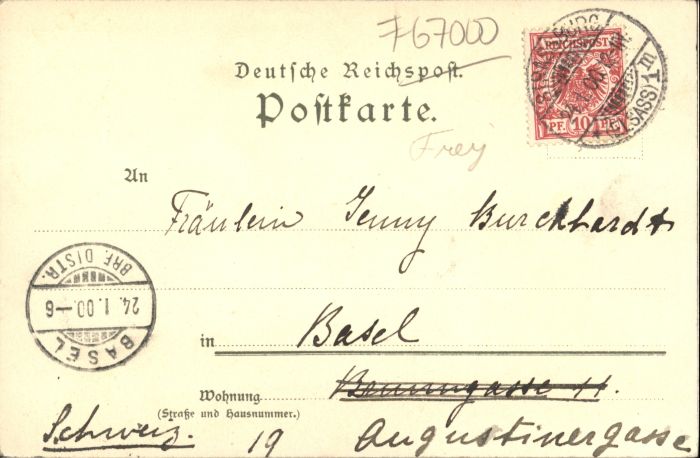 767000
Deutsche Reichspost.
Postkarte.
Frey
REICHSPOST
PF. 10 PF.
STRASSBURG (ELSASS) 1 m
An
Fräulein Jenny Burckhardt
BASEL
24. 1. 00.–6
BRF. DISTR.
in Basel
Wohnung
(Straße und Hausnummer.)
Schweiz. 19 Augustinergasse